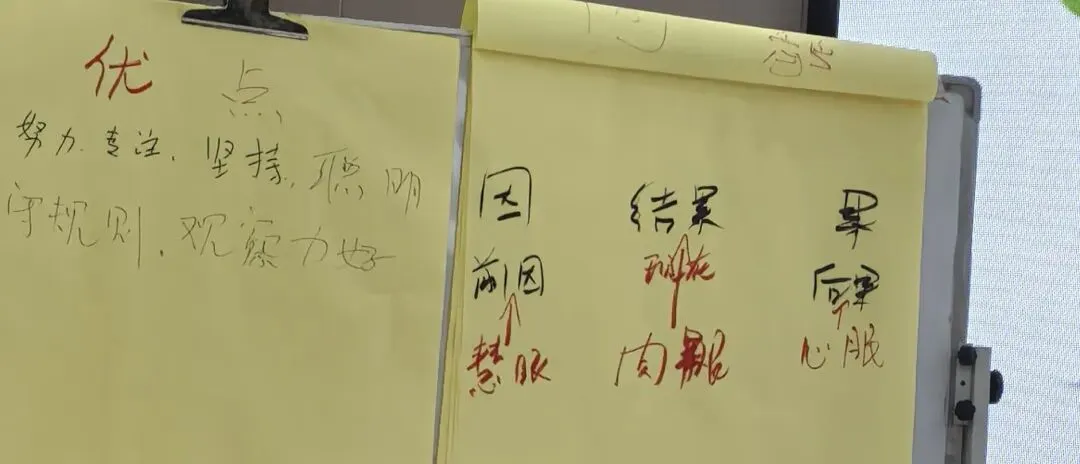 优点
努力、专注、坚持、聪明
守规则、观察力好
因 结果 果
前因 现在 后果
慧眼 肉眼 心眼